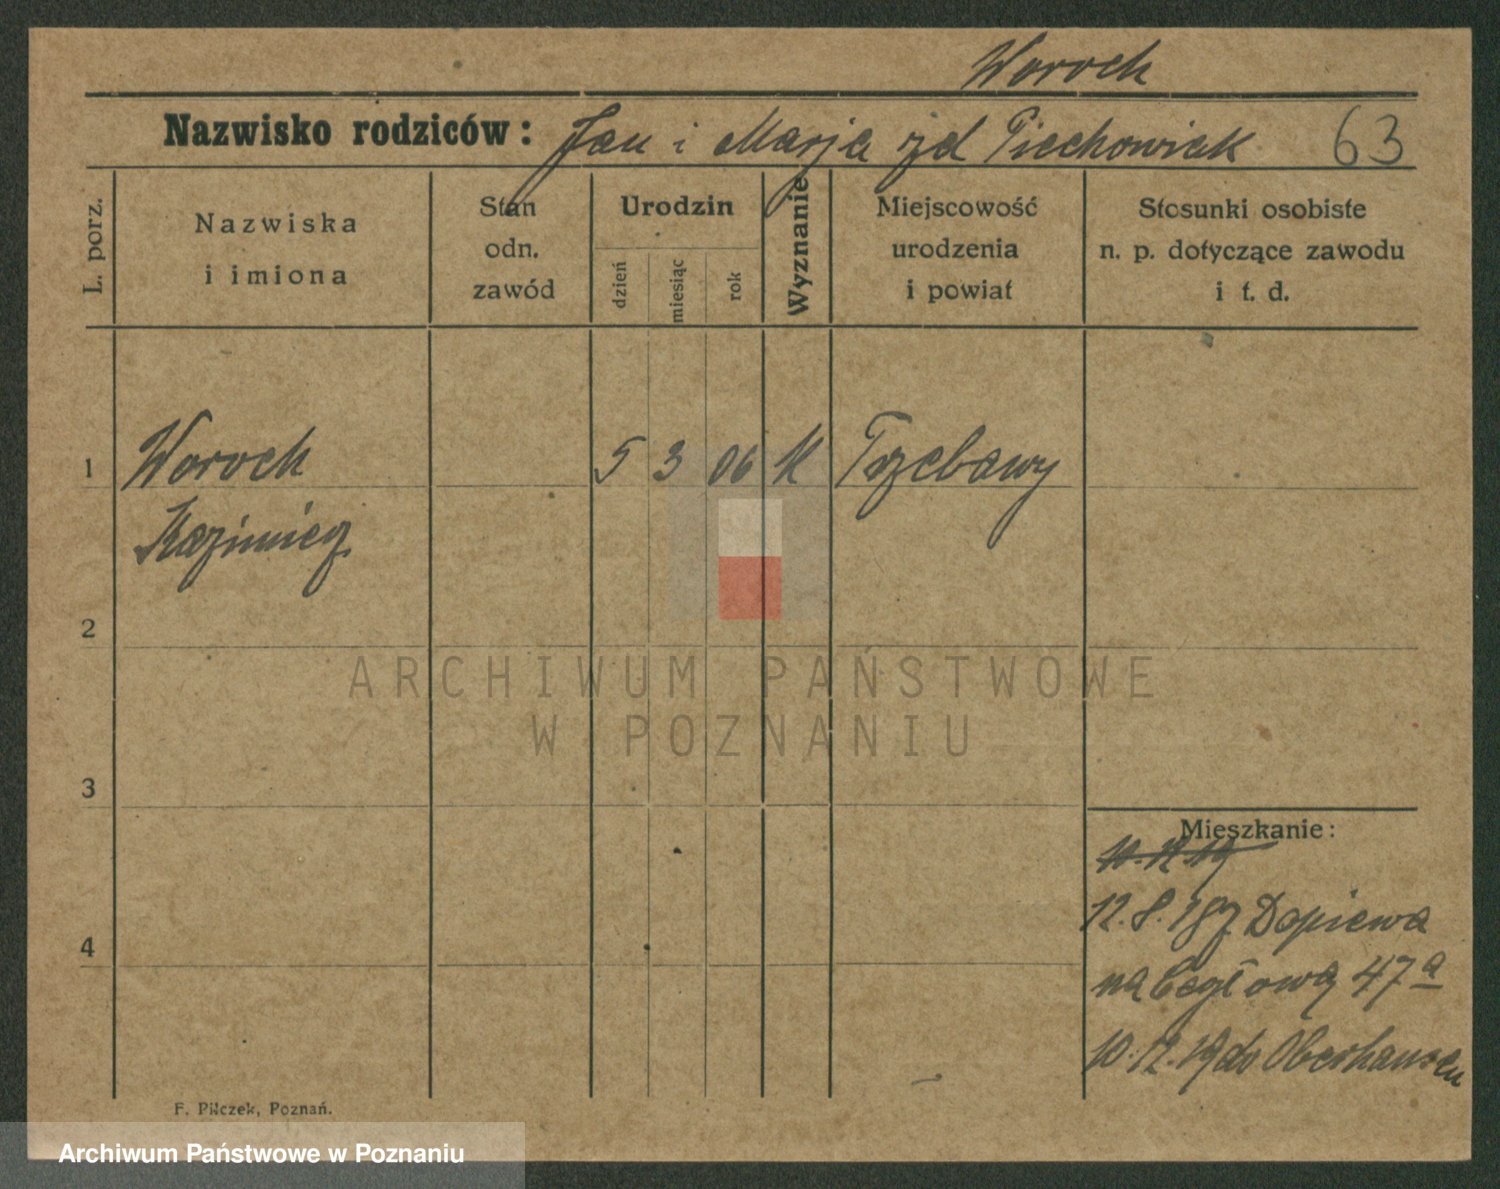 Woroch
Nazwisko rodziców: Jan i Marja rzd Piechowiak 63
L. porz.
Nazwiska
i imiona
Stan
odn.
zawód
Urodzin
dzień
miesiąc
rok
Wyznanie
Miejscowość
urodzenia
i powiat
Stosunki osobiste
n. p. dotyczące zawodu
i t. d.
1 Woroch 5 3 06 K Trzebawy
Kazimierz
2
3
4
ARCHIWUM PAŃSTWOWE
W POZNANIU
Mieszkanie:
10.12.19
12.8. z Dopiewa
na 47a
10.12.19 do Oberhausen
F. Pilczek, Poznań.
Archiwum Państwowe w Poznaniu